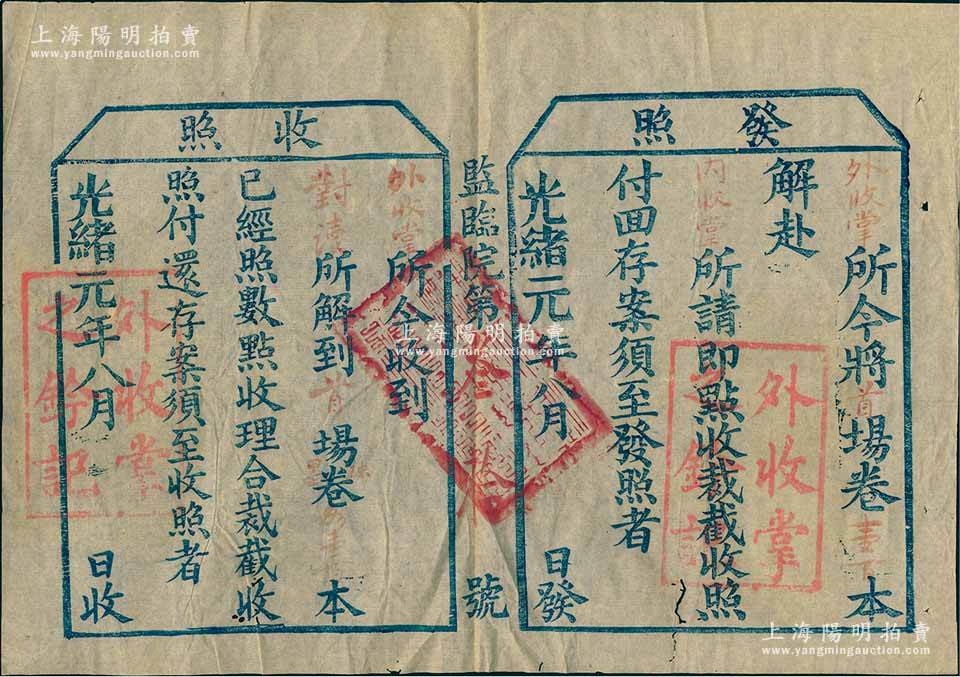 上海陽明拍賣
www.yangmingauction.com
發照
外收掌所今將首場卷壹本
解赴
內收掌所請即點收裁截收照
付回存案須至發照者
光緒元年八月 日發
監臨院第 號
收照
外收掌所今收到
對讀所解到首場卷 本
已經照數點收理合裁截收
照付還存案須至收照者
光緒元年八月 日收
外收掌
之鈐記
外收掌
之鈐記
上海陽明拍賣
www.yangmingauction.com
上海陽明拍賣
www.yangmingauction.com